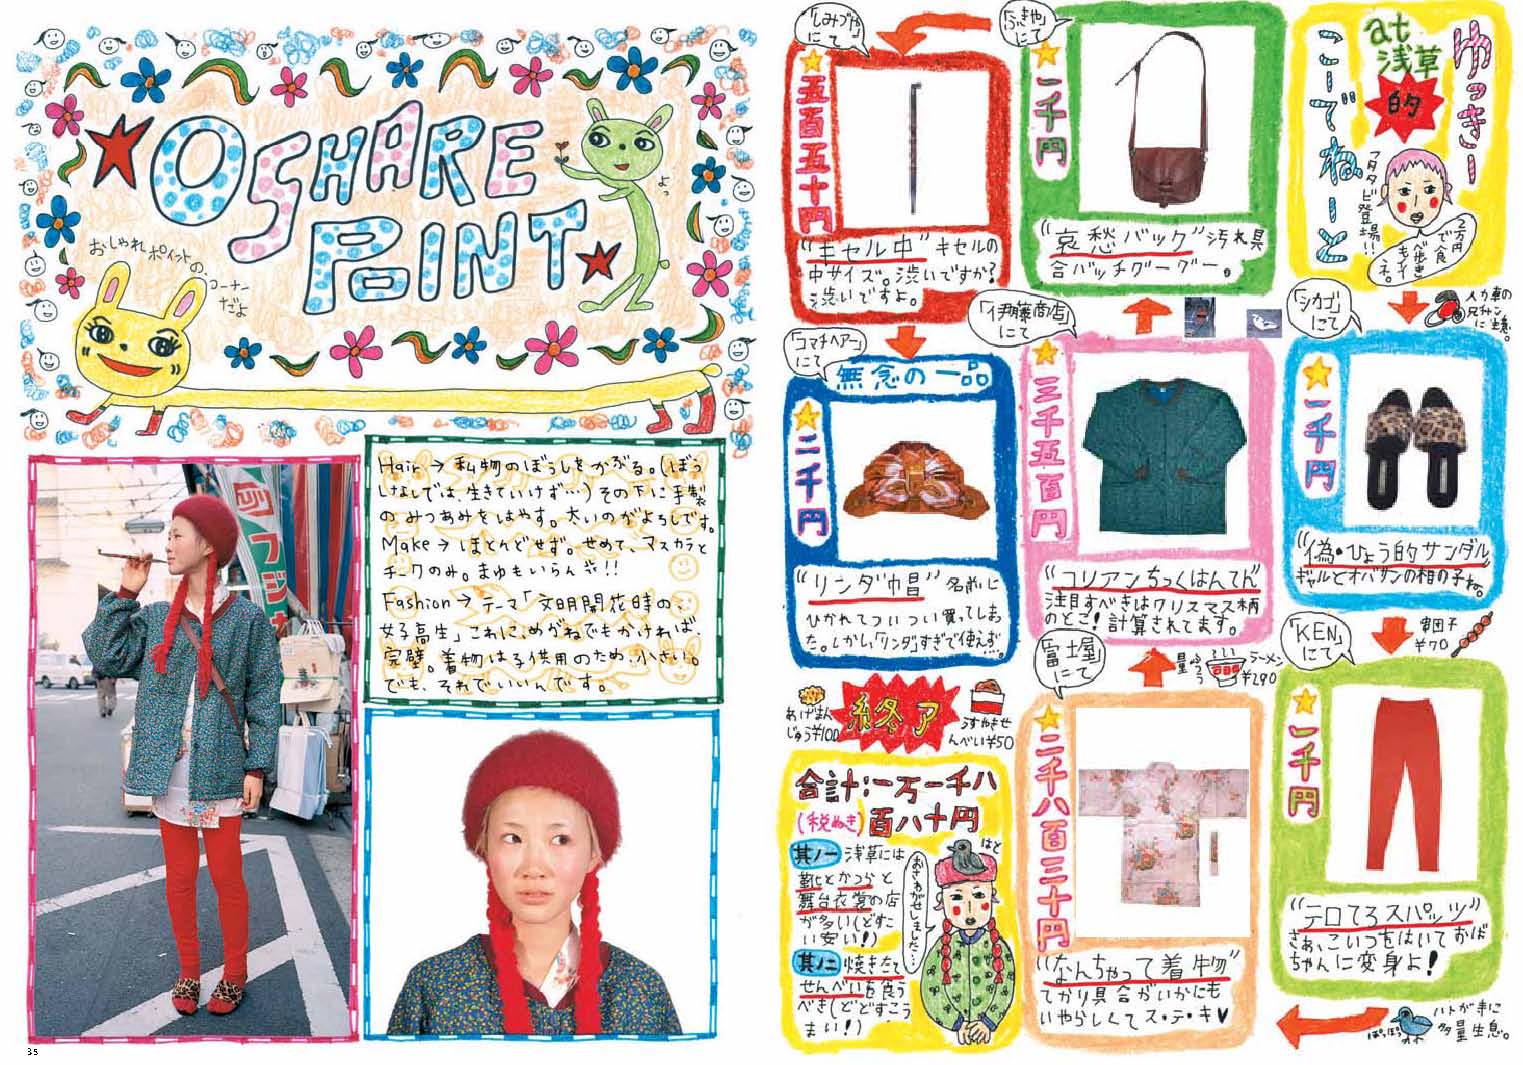 OSHARE
POINT
よっ
おしゃれポイントの、
コーナー
だよ
Hair→私物のぼうしをかぶる。(ぼう
しなしでは、生きていけず…)その下に手製
のみつあみをはやす。太いのがよろしです。
Make→ほとんどせず。せめて、マスカラと
チークのみ。まゆもいらん!!
Fashion→テーマ「文明開花時の、
女子高生」これに、めがねでもかければ、
完璧。着物は子供用のため、小さい。
でも、それでいいんです。
35
ゆっきー
at
浅草
的
こーでねーと
フタタビ登場!!
2万円
で食
べ歩き
もイイ
ネ。
人力車の
兄チャン
に
「シカゴ」
にて
★一千円
"偽・ひょう的サンダル"
ギャルとオバサンの相の子ね。
団子
¥70
「KEN」
にて
★一千円
"テロてろスパッツ"
さぁ、こいつをはいておば
ちゃんに変身よ!
ハトが手に
多量生息。
ぽっぽっ
「富士屋」
にて
★二千八百三十円
"なんちゃって着物"
てかり具合がいかにも
いやらしくてス・テ・キ♥
ラーメン
¥290
「伊藤商店」
にて
★三千五百円
"コリアンちっくはんてん"
注目すべきはクリスマス柄
のとこ!計算されてます。
「ふきや」
にて
★一千円
"哀愁バック"汚れ具
合バッチグーグー。
「しみづや」
にて
★五百五十円
"キセル中"キセルの
中サイズ。渋いですか?
渋いですよ。
「コマチヘアー」
にて
無念の一品
★二千円
"リンダ帽"名前に
ひかれてついつい買ってしまっ
た。しかし「リンダ」すぎて使えず。
あげまん
じゅう¥100
終了
うすやきせ
んべい¥50
合計:一万一千八
(税ぬき)百八十円
其ノ一 浅草には
靴とかつらと
舞台衣裳の店
が多い(どすご
い安い!)
其ノ二 焼きたて
せんべいを食う
べき(どどすこう
まい!)
おさわがせしました…
はと